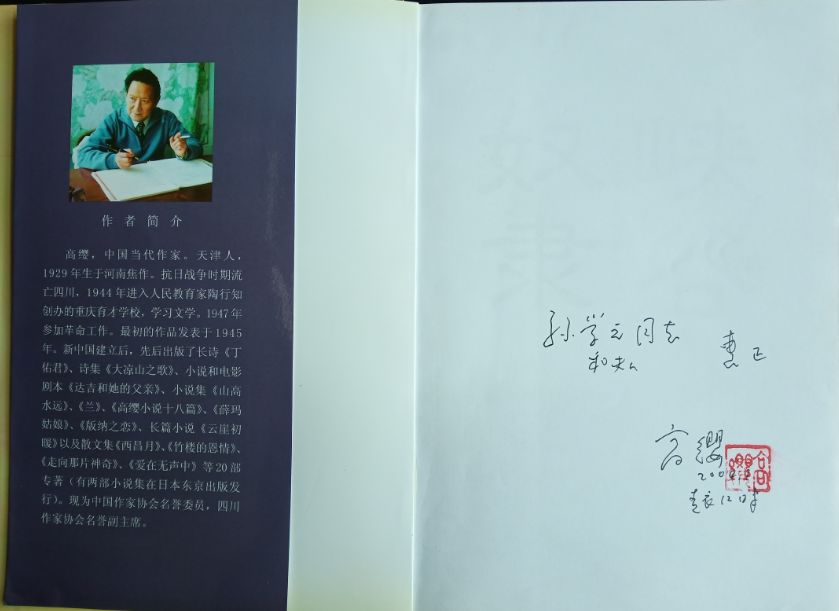 作者简介
高缨，中国当代作家。天津人，
1929年生于河南焦作。抗日战争时期流
亡四川，1944年进入人民教育家陶行知
创办的重庆育才学校，学习文学。1947年
参加革命工作。最初的作品发表于1945
年。新中国建立后，先后出版了长诗《丁
佑君》、诗集《大凉山之歌》、小说和电影
剧本《达吉和她的父亲》、小说集《山高
水远》、《兰》、《高缨小说十八篇》、《薛玛
姑娘》、《版纳之恋》、长篇小说《云崖初
暖》以及散文集《西昌月》、《竹楼的恩情》、
《走向那片神奇》、《爱在无声中》等20部
专著（有两部小说集在日本东京出版发
行）。现为中国作家协会名誉委员，四川
作家协会名誉副主席。
孙学云同志
惠正
高缨